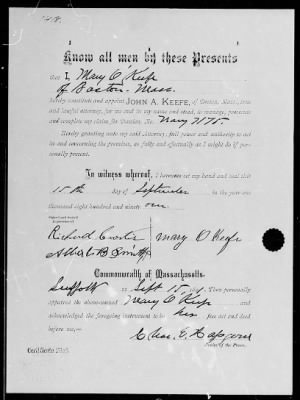 Know all men by these Presents
that I, Mary O'Keefe
of Boston Mass.
hereby constitute and appoint JOHN A. KEEFE, of Boston, Mass., true
and lawful attorney, for me and in my name and stead, to manage, prosecute
and complete my claim for Pension, No. Navy 7175
Hereby granting unto my said attorney, full power and authority to act
in and concerning the premises, as fully and effectually as I might do if per-
sonally present.
In witness whereof, I hereunto set my hand and seal this
15th day of September in the year one
thousand eight hundred and ninety one
Richard
Mary O'Keefe
Albert B. Smith
Commonwealth of Massachusetts.
Suffolk ss Sept 15, 1891 Then personally
appeared the above-named Mary O'Keefe and
acknowledged the foregoing instrument to be her free act and deed
before me,—
Chas. E. Hapgood